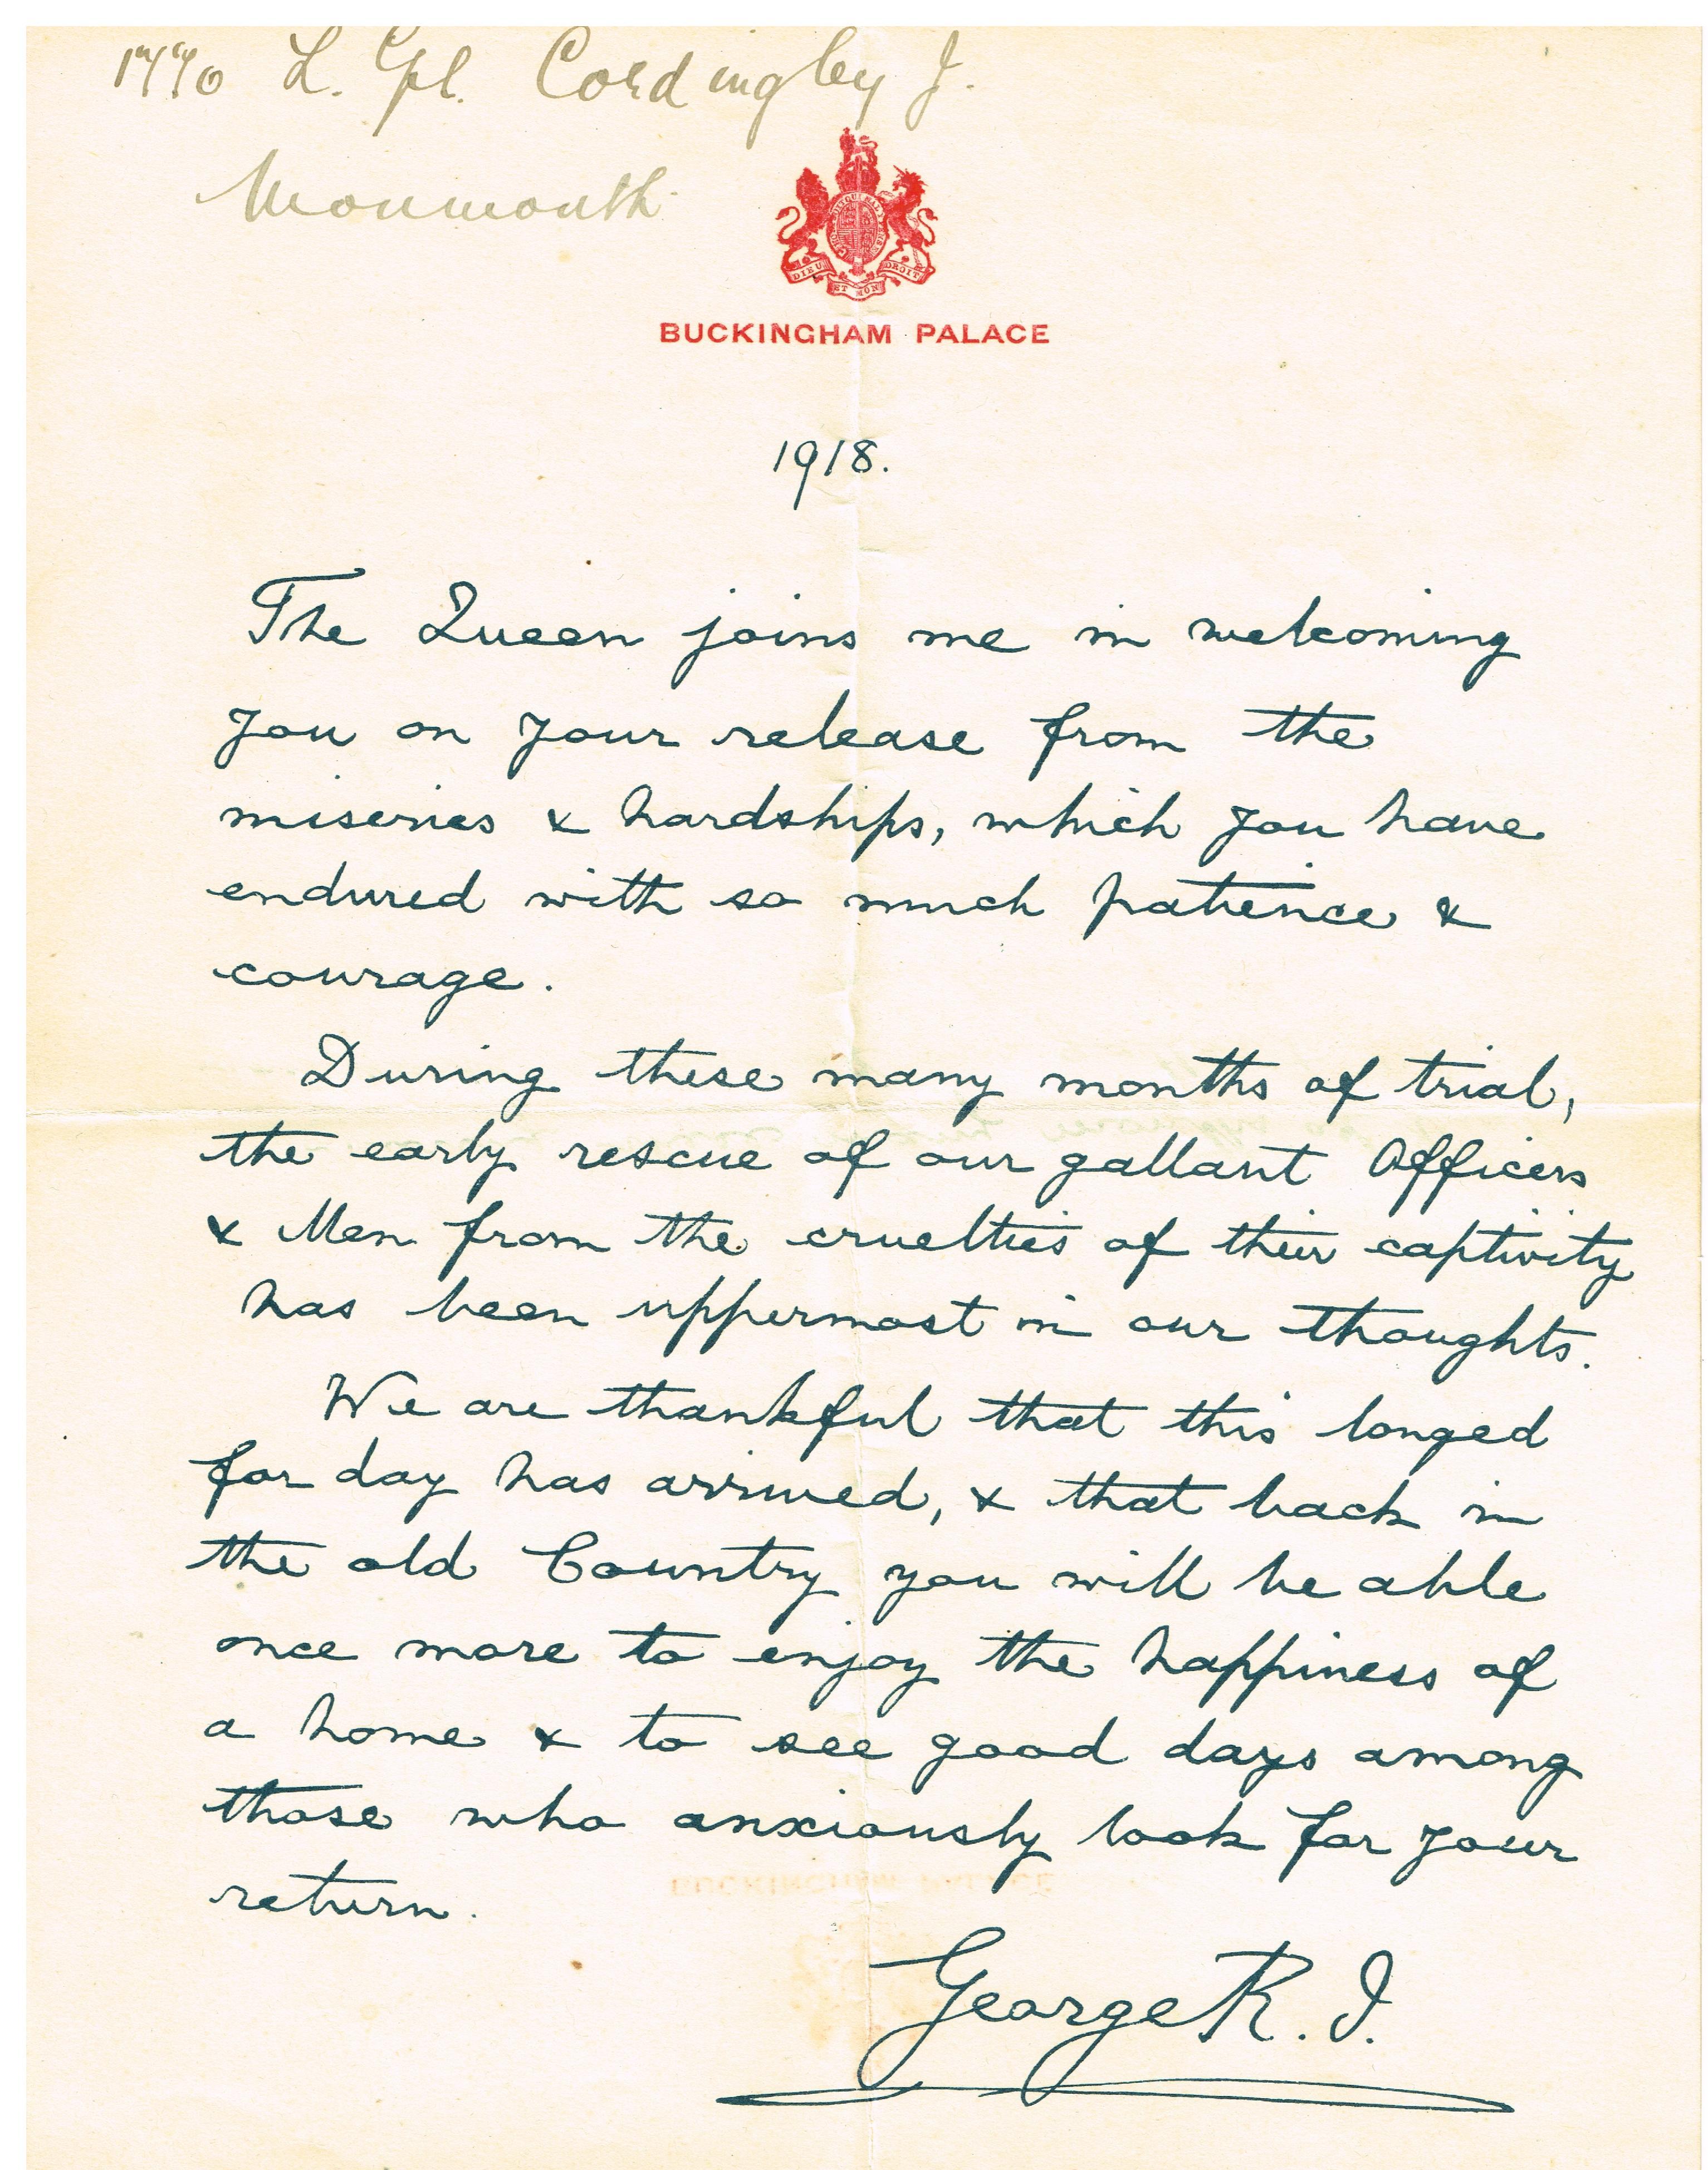 1770 L. Cpl. Cordingley J.
Monmouth
DIEU ET MON DROIT
BUCKINGHAM PALACE
1918.
The Queen joins me in welcoming
you on your release from the
miseries & hardships, which you have
endured with so much patience &
courage.
During these many months of trial,
the early rescue of our gallant Officers
& Men from the cruelties of their captivity
has been uppermost in our thoughts.
We are thankful that this longed
for day has arrived, & that back in
the old Country you will be able
once more to enjoy the happiness of
a home & to see good days among
those who anxiously look for your
return.
George R. I.